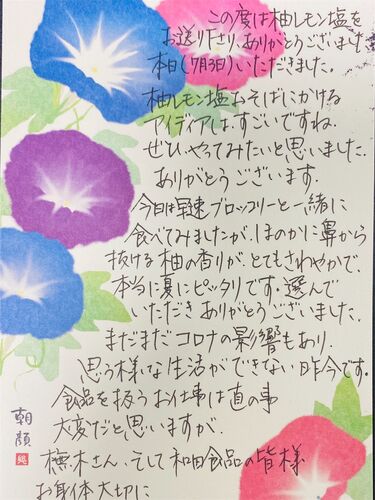 この度は柚レモン塩を
お送り下さり、ありがとうございました
本日(7月3日)いただきました。
柚レモン塩おそばにかける
アイディアは、すごいですね。
ぜひ、やってみたいと思いました。
ありがとうございます。
今日は早速ブロッコリーと一緒に
食べてみましたが、ほのかに鼻から
抜ける柚の香りが、とてもさわやかで、
本当に夏にピッタリです。選んで
いただきありがとうございました。
まだまだコロナの影響もあり、
思う様な生活ができない昨今です。
食品を扱うお仕事は直の事
大変だと思いますが、
さん、そして和田食品の皆様
お身体大切に
朝顔